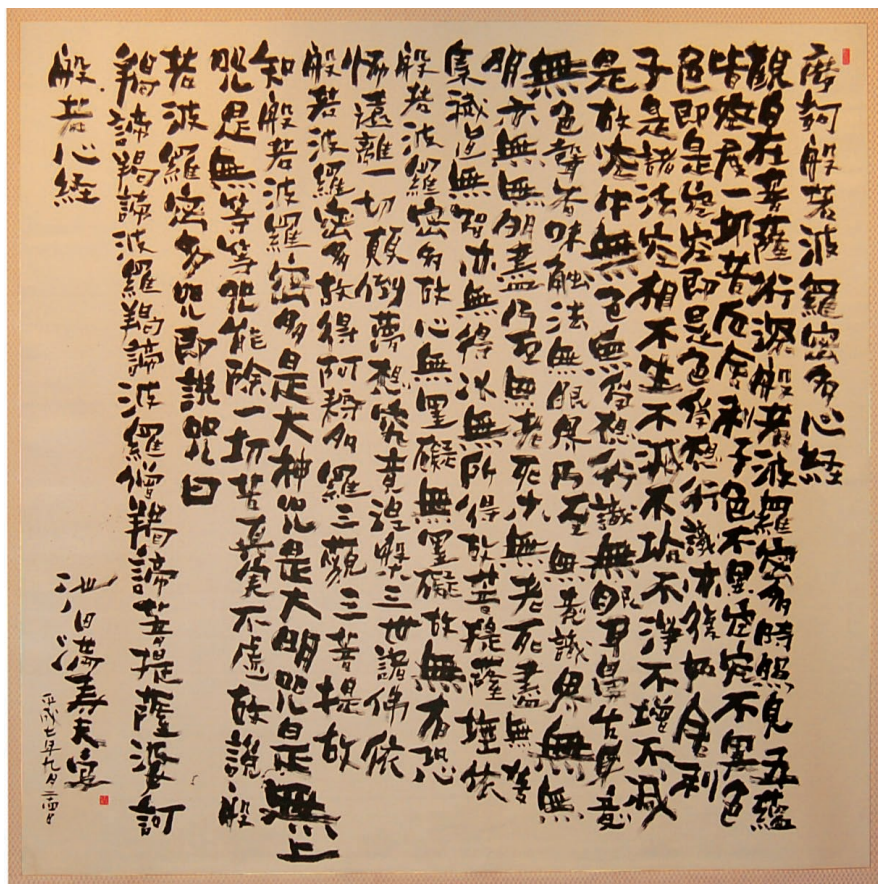 摩訶般若波羅密多心経
観自在菩薩行深般若波羅密多時照見五蘊
皆空度一切苦厄舎利子色不異空空不異色
色即是空空即是色受想行識亦復如舎利
子是諸法空相不生不滅不垢不浄不増不減
是故空中無色無受想行識無眼耳鼻舌身意
無色聲香味触法無眼界乃至無意識界無無
明亦無無明盡乃至無老死亦無老死盡無苦
集滅道無智亦無得以無所得故菩提薩埵依
般若波羅密多故心無罣礙無罣礙故無有恐
怖遠離一切顛倒夢想究竟涅槃三世諸佛依
般若波羅密多故得阿耨多羅三藐三菩提故
知般若波羅密多是大神咒是大明咒是無上
咒是無等等咒能除一切苦真実不虚故説般
若波羅密多咒即説咒曰
羯諦羯諦波羅羯諦波羅僧羯諦菩提薩婆訶
般若心経
池田満寿夫写
平成七年九月